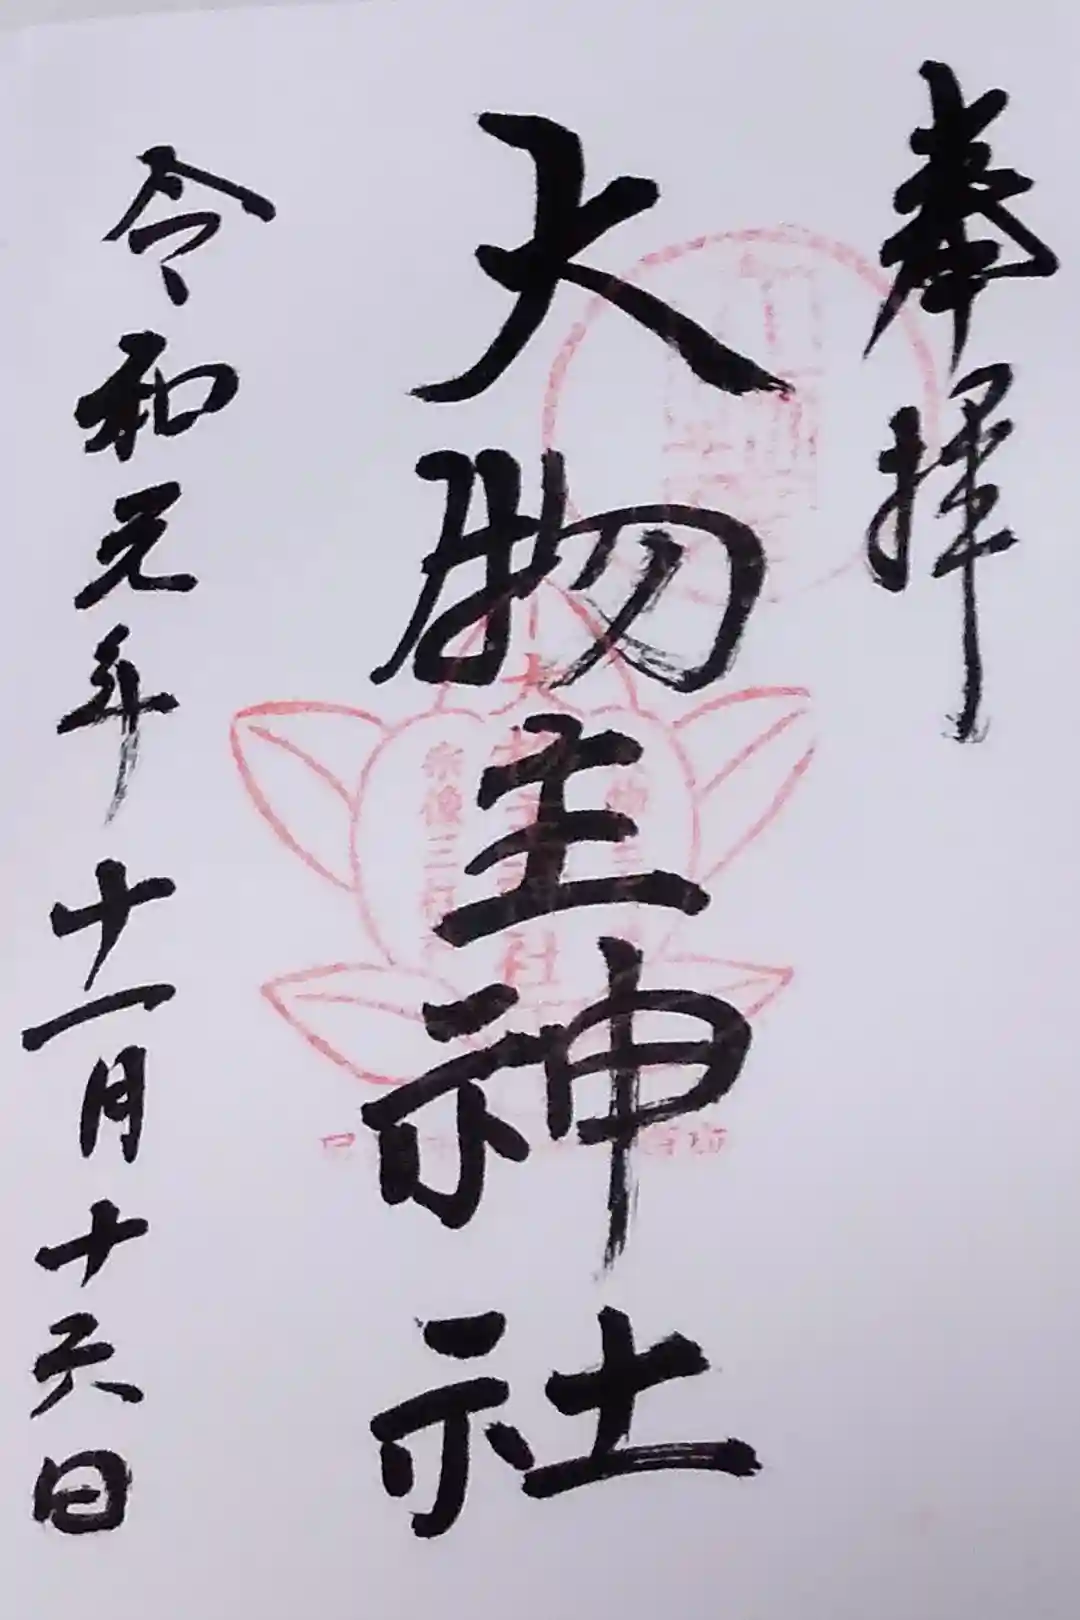 奉拝
大物主神社
令和元年十一月十六日
大物主神社
宗像三